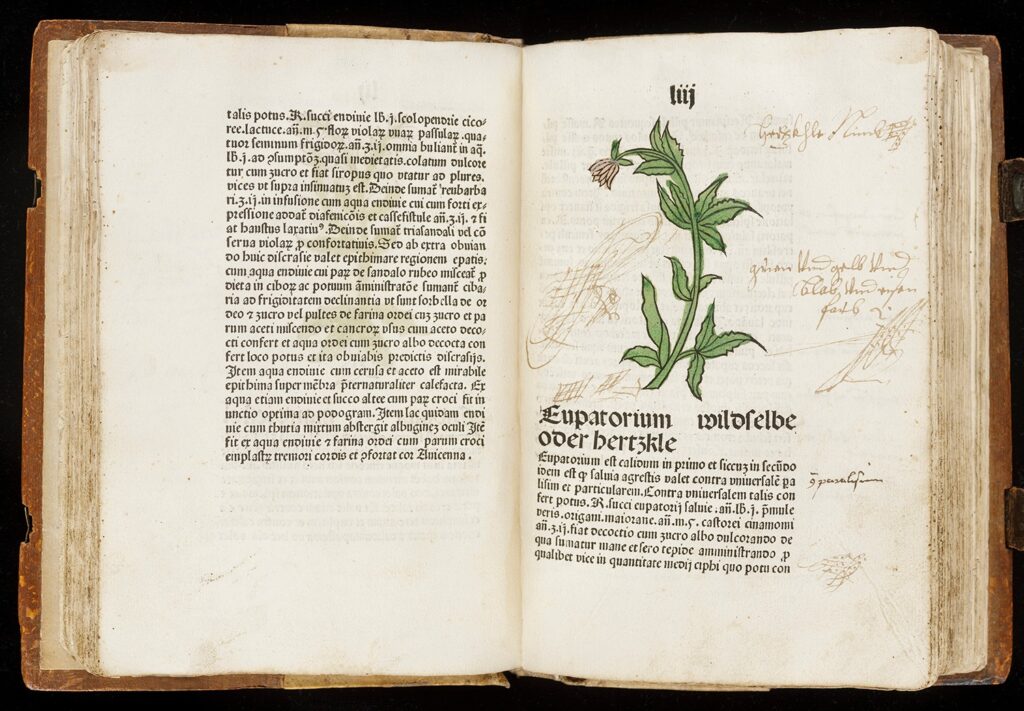 talis potus. R. succi endiuie lb. j. scolopendrie cico-
ree. lactuce. añ. m. ʒ flor violar vuar passular. qua-
tuor seminum frigidor. añ. ʒ. ij. omnia buliant in aq.
lb. j. ad ꝯsumptōʒ. quasi medietatis. colatum dulcore
tur cum zucro et fiat siropus quo vtatur ad plures.
vices vt supra insinuatuʒ est. Deinde sumat reubarba
ri. ʒ. ij. in infusione cum aqua endiuie cui cum forti ex-
pressione addat diafenicōis et cassefistule añ. ʒ. ij. ⁊ fi
at haustus laxatiuꝰ. Deinde sumat triasandali vel cō
serua violaꝝ ꝓ confortatiuis. Sed ab extra obuian
do huic discrasie valet epithimare regionem epatis.
cum aqua endiuie cui paꝝ de sandalo rubeo misceat ꝓ
dieta in ciboꝝ ac potuum āministratōe sumant ciba-
ria ad frigiditatem declinantia vt sunt sorbilla de or
deo ⁊ zucro vel pultes de farina ordei cuʒ zucro et pa
rum aceti miscendo et cancroꝝ vsus cum aceto deco-
cti confert et aqua ordei cum zucro albo decocta con
fert loco potus et ita obuiabis predictis discrasijs.
Jtem aqua endiuie cum cerusa et aceto est mirabile
epithima super mēbra p̄ternaturaliter calefacta. Ex
aqua etiam endiuie et succo altee cum paꝝ croci fit in
unctio optima ad podogram. Jtem lac quidam endi
uie cum thutia mixtum abstergit albugineʒ oculi Jtē
fit ex aqua endiuie ⁊ farina ordei cum parum croci
emplastꝝ tremori cordis et ꝯfortat cor Auicenna.
liij
hertzkhle
grien vnd gelb vnd
blab vnd eisen
farb
Eupatorium wildselbe
oder hertzkle
Eupatorium est calidum in primo et siccuʒ in secūdo
idem est qꝫ saluia agrestis valet contra vniuersalē pa
lisim et particularem. Contra vniuersalem talis con
fert potus. R. succi eupatorij saluie. añ. lb. j. p̄mule
veris. origani. maiorane. añ. m. ʒ. castorei cinamomi
añ. ʒ. ij. fiat decoctio cum zucro albo dulcorando de
qua sumatur mane et sero tepide amministrando ꝓ
qualibet vice in quantitate medij ciphi quo potu con
ꝯ paralisim